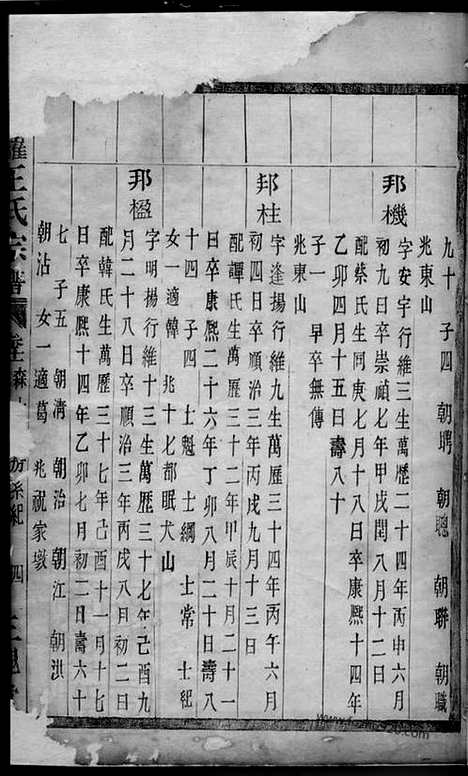 九十 子四 朝聘 朝聰 朝聯 朝職
兆東山
邦機
字安宇行維三生萬歷二十四年丙申六月
初九日卒崇禎七年甲戌閏八月十二日
配蔡氏生同庚七月十八日卒康熙十四年
乙卯四月十五日壽八十
子一 早卒無傳
兆東山
邦柱
字逢揚行維九生萬歷三十四年丙午六月
初四日卒順治三年丙戌九月十三日
配譚氏生萬歷三十二年甲辰十月二十一
日卒康熙二十六年丁卯八月二十日壽八
十四 子四 士魁 士綱 士常 士紀
女一適韓 兆十七都眠犬山
邦楹
字明揚行維十三生萬歷三十七年己酉九
月二十八日卒順治三年丙戌八月初二日
配韓氏生萬歷三十七年己酉十一月十七
日卒康熙十四年乙卯七月初二日壽六十
七 子五 朝清 朝治 朝江 朝洪
朝沾 女一適葛 兆祝家墩
羅王氏宗譜